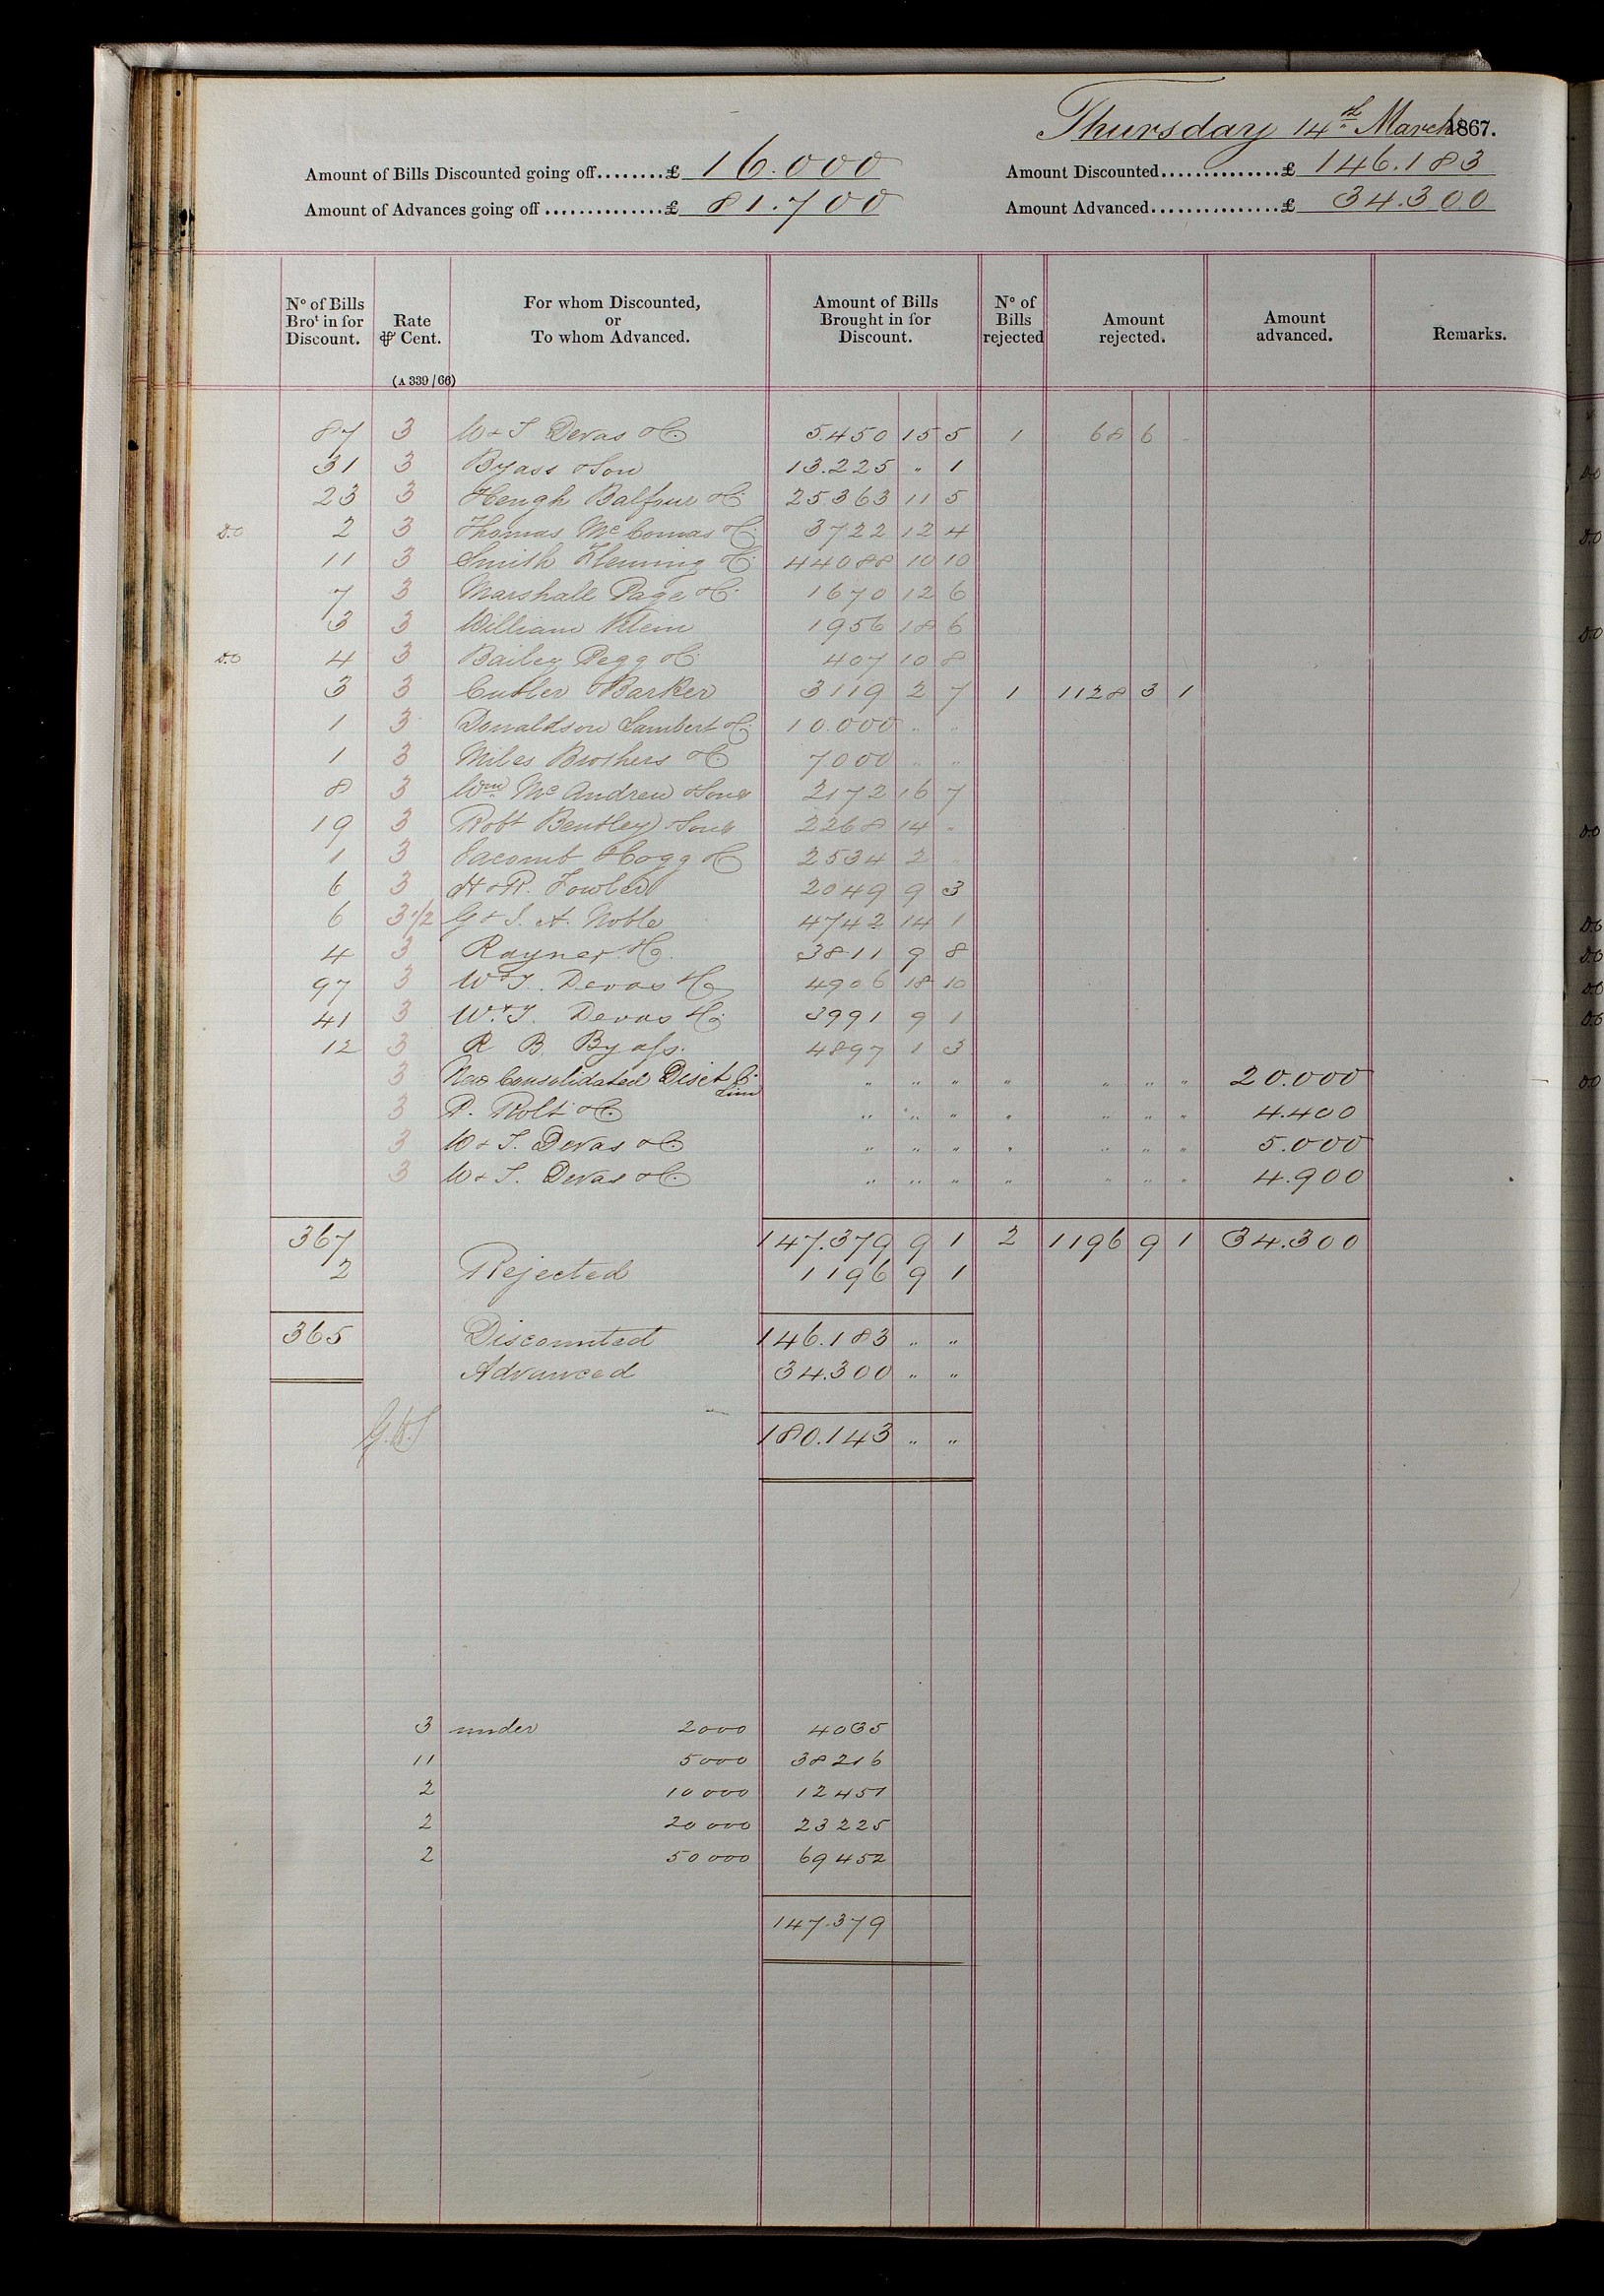 Thursday 14th March 1867.
Amount of Bills Discounted going off........£ 16.000 Amount Discounted...............£ 146.183
Amount of Advances going off ..............£ 81.700 Amount Advanced................£ 34.300
No of Bills Brot in for Discount. Rate ⅌ Cent. For whom Discounted, or To whom Advanced. Amount of Bills Brought in for Discount. No of Bills rejected Amount rejected. Amount advanced. Remarks.
(A 339/66)
87 3 W & T Devas & Co 5.450 15 5 1 68 6 -
31 3 Byass & Son 13.225 " 1
23 3 Heugh Balfour & Co 25.363 11 5
D.O 2 3 Thomas McComas & Co 3722 12 4
11 3 Smith Fleming & Co 44088 10 10
7 3 Marshall Page & Co 1670 12 6
3 3 William Klein 1956 18 6
D.O 4 3 Bailey Pegg & Co 407 10 8
3 3 Cutler & Barker 3119 2 7 1 1128 3 1
1 3 Donaldson Lambert & Co 10.000 " "
1 3 Miles Brothers & Co 7000 " "
8 3 Wm McAndrew & Sons 2172 16 7
19 3 Robt Bentley & Sons 2268 14 "
1 3 Jacomb & Hogg & Co 2534 2 "
6 3 H & R. Fowler 2049 9 3
6 3 1/2 G & J. A. Noble 4742 14 1
4 3 Rayner & Co. 3811 9 8
97 3 W & T. Devas & Co 4906 18 10
41 3 W & T. Devas & Co 3991 9 1
12 3 R B Byass. 4897 1 3
3 New Consolidated Disct Co Lim " " " " " " " 20.000
3 P. Rolt & Co " " " " " " " 4.400
3 W & T. Devas & Co " " " " " " " 5.000
3 W & T. Devas & Co " " " " " " " 4.900
367 147.379 9 1 2 1196 9 1 34.300
2 Rejected 1196 9 1
365 Discounted 146.183 " "
Advanced 34.300 " "
180.143 " "
3 under 2000 4035
11 5000 38216
2 10000 12451
2 20000 23225
2 50000 69452
147.379